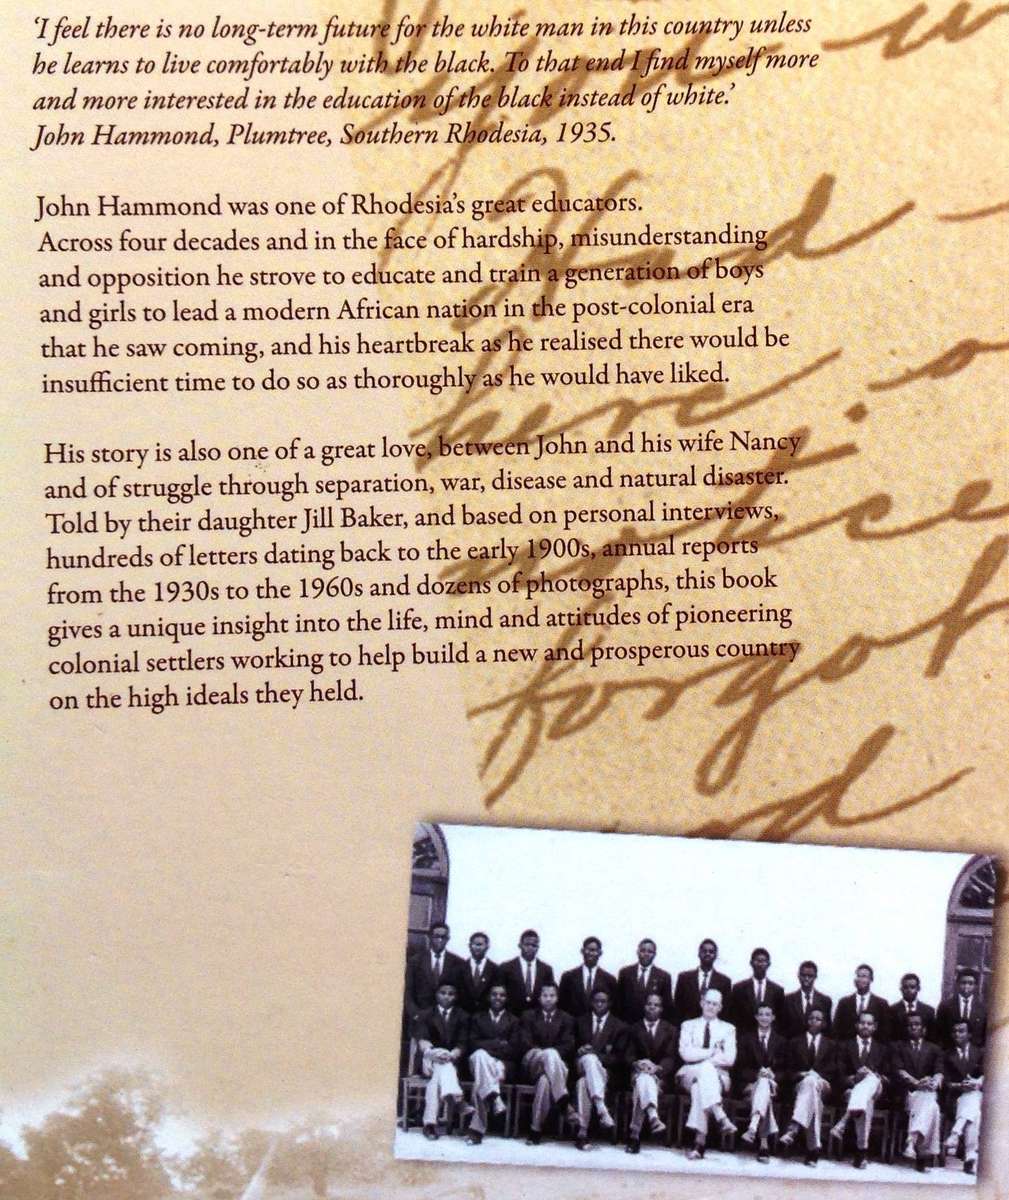 'I feel there is no long-term future for the white man in this country unless
he learns to live comfortably with the black. To that end I find myself more
and more interested in the education of the black instead of white.'
John Hammond, Plumtree, Southern Rhodesia, 1935.
John Hammond was one of Rhodesia's great educators.
Across four decades and in the face of hardship, misunderstanding
and opposition he strove to educate and train a generation of boys
and girls to lead a modern African nation in the post-colonial era
that he saw coming, and his heartbreak as he realised there would be
insufficient time to do so as thoroughly as he would have liked.
His story is also one of a great love, between John and his wife Nancy
and of struggle through separation, war, disease and natural disaster.
Told by their daughter Jill Baker, and based on personal interviews,
hundreds of letters dating back to the early 1900s, annual reports
from the 1930s to the 1960s and dozens of photographs, this book
gives a unique insight into the life, mind and attitudes of pioneering
colonial settlers working to help build a new and prosperous country
on the high ideals they held.
Had
here
forgot